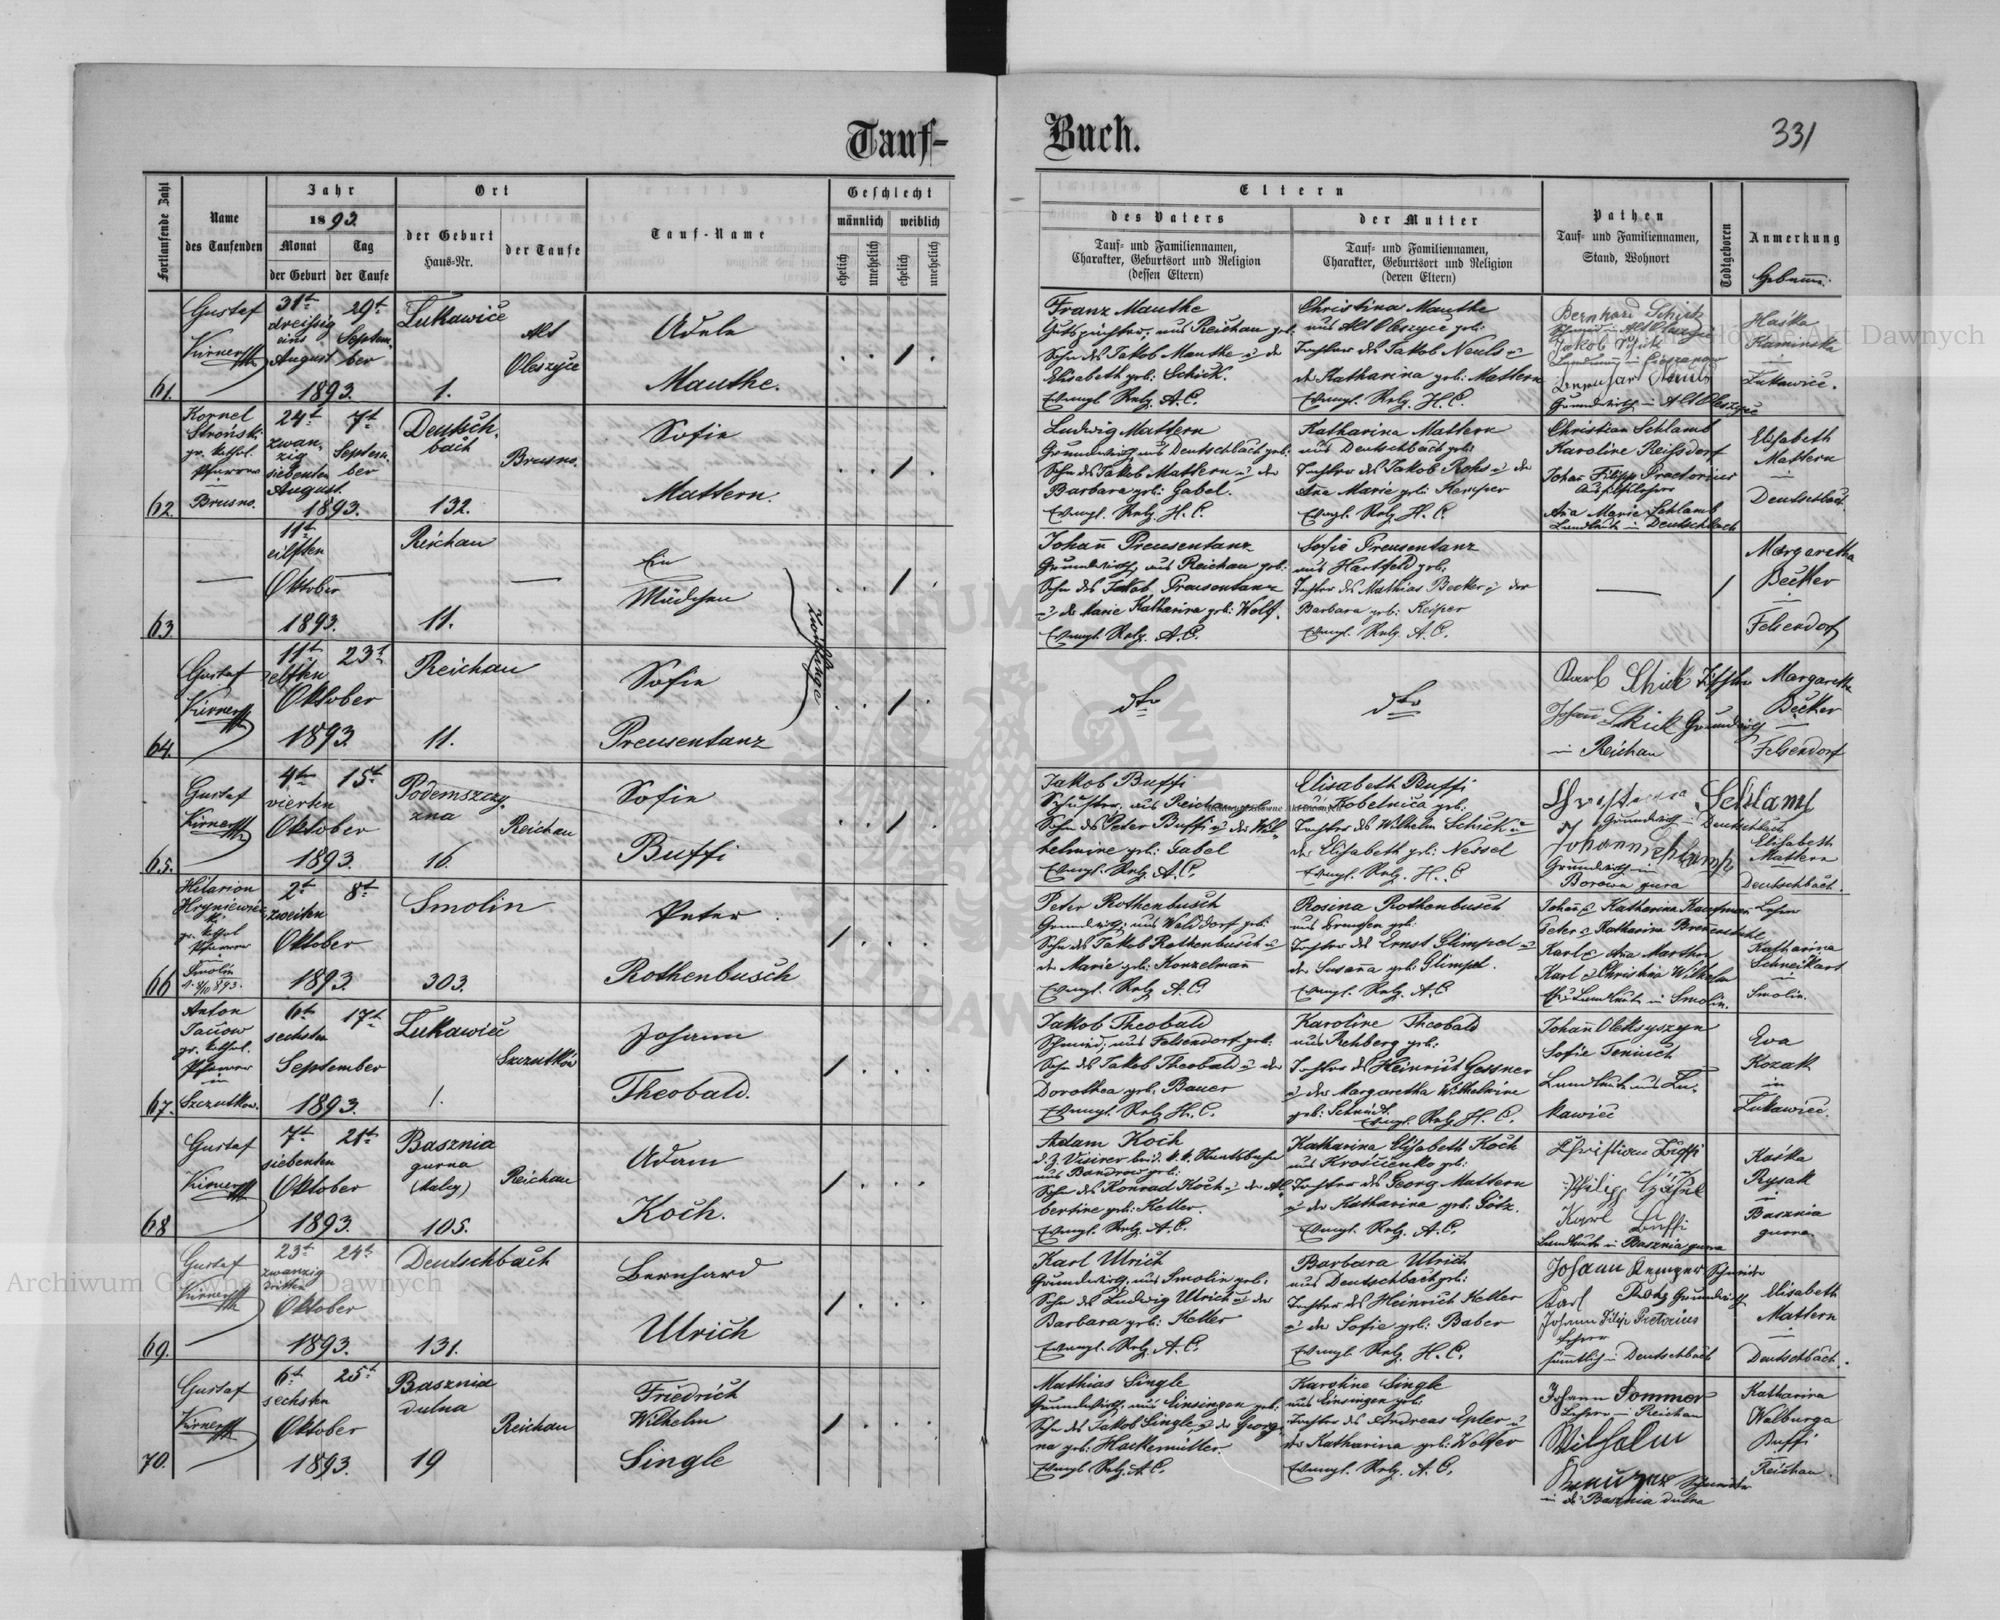 Tauf-
Buch.
331
Fortlaufende Zahl
Name
des Taufenden
Jahr
1893.
Monat
Tag
der Geburt
der Taufe
Ort
der Geburt
Haus-Nr.
der Taufe
Tauf-Name
Geschlecht
männlich
weiblich
ehelich
unehelich
ehelich
unehelich
Eltern
des Vaters
Tauf- und Familiennamen,
Charakter, Geburtsort und Religion
(dessen Eltern)
der Mutter
Tauf- und Familiennamen,
Charakter, Geburtsort und Religion
(deren Eltern)
Pathen
Tauf- und Familiennamen,
Stand, Wohnort
Todtgeboren
Anmerkung
61.
Gustaf
31t
dreißig
eins
August
29t
Septem-
ber
1893.
Łukawice
1.
Alt
Oleszyce
Adele
Mauthe.
Franz Mauthe
Gutspächter, aus Reichau geb.
Sohn des Jakob Mauthe u der
Elisabeth geb: Schick.
Evangl. Relg. A.C.
Christina Mauthe
aus Alt Oleszyce geb:
Tochter des Jakob Neuls u
der Katharina geb: Mattern
Evangl. Relg. H.C.
Bernhard Schick
Jakob Schick
Grundwirth in Alt Oleszyce
Haśka
Kaminska
Łukawice.
62.
Kornel
gr. kathol.
Pfarrer
Brusno.
24t
zwan-
zig
siebenten
August.
7t
Septem-
ber
1893.
Deutsch-
bach
132.
Brusno.
Sofie
Mattern.
Ludwig Mattern
Grundwirth aus Deutschbach geb.
Sohn des Jakob Mattern u der
Barbara geb: Gabel.
Evangl. Relg. H.C.
Katharina Mattern
aus Deutschbach geb:
Tochter des Jakob Rohs u der
Ana Marie geb: Kemper
Evangl. Relg. H.C.
Christian Schlamb
Karoline Reißdorf
Johan Filipp Praetorius
Ana Marie Schlamb
Landleute in Deutschbach
Elisabeth
Mattern
Deutschbach
63
11t
eilften
Oktober
1893.
Reichau
11.
Ein
Mädchen
Zwillinge
Johann Preusentanz
Grundwirth, aus Reichau geb:
Sohn des Jakob Preusentanz
u der Marie Katharina geb: Wolf.
Evangl. Relg. A.C.
Sofie Preusentanz
aus Hartfeld geb.
Tochter des Mathias Becker u der
Barbara geb: Keiper
Evangl. Relg. A.C.
Margaretha
Becker
Felsendorf
64.
Gustaf
11t
elften
23t
Oktober
1893.
Reichau
11.
Sofie
Preusentanz
dto
dto
Karl Schick
Johann Schick Grundwirth
in Reichau
Margaretha
Becker
Felsendorf
65.
Gustaf
4t
15t
vierten
Oktober
1893.
Podemszczy-
zna
16.
Reichau
Sofie
Buffi
Jakob Buffi
Schuster, aus Reichau geb.
Sohn des Peter Buffi u der Wil-
helmine geb: Gabel
Evangl. Relg. A.C.
Elisabeth Buffi
aus Kobelnica geb:
Tochter des Wilhelm Schick u
der Elisabeth geb: Nessel
Evangl. Relg. H.C
Christian Schlamp
Grundwirth Deutschbach
Johann Schlamp
Grundwirth in
Borowa gura
Elisabeth
Mattern
Deutschbach.
66
Hilarion
gr. kathol
Pfarrer
Smolin
2t
8t
zweiten
Oktober
1893.
Smolin
303.
Peter
Rothenbusch
Peter Rothenbusch
Grundwirth, aus Walddorf geb:
Sohn des Jakob Rothenbusch u
der Marie geb: Konzelmann
Evangl. Relg. A.C.
Rosina Rothenbusch
aus Preußen geb:
Tochter des Ernst Glimpel u
der Susana geb: Glimpel.
Evangl. Relg. A.C
Johann u Katharina Kaufman Lehrer
Karl u Ana Marthe
Karl u Christina Wilhelm
Landleute in Smolin.
Katharina
Schneikart
Smolin.
67.
Anton
gr. kathol.
Pfarrer
in
Szczutkow.
6t
17t
sechsten
September
1893.
Łukawiec
1.
Szczutków
Johann
Theobald.
Jakob Theobald
Schmied, aus Felsendorf geb:
Sohn des Jakob Theobald u der
Dorothea geb: Bauer
Evangl. Relg. H.C.
Karoline Theobald
aus Rehberg geb:
Tochter des Heinrich Gessner
u der Margaretha Wilhelmine
geb: Schmidt.
Evangl. Relg. H.C.
Johann Oleksyszyn
Landleute aus Łu-
kawiec
Eva
Kozak
in
Łukawiec.
68
Gustaf
7t
21t
siebenten
Oktober
1893.
Basznia
gurna
105.
Reichau
Adam
Koch.
Adam Koch
Sohn des Konrad Koch u der Al-
bertine geb: Keller.
Evangl. Relg. A.C.
Katharina Elisabeth Koch
aus Krościenko geb:
Tochter des Georg Mattern
u der Katharina geb: Götz.
Evangl. Relg. A.C.
Christian Buffi
Karl Buffi
Landleute in Basznia gurna
Kaśka
Rysak
in
Basznia
gurna.
69.
Gustaf
23t
24t
zwanzig
dritten
Oktober
1893.
Deutschbach
131.
Bernhard
Ulrich
Karl Ulrich
Grundwirth, aus Smolin geb:
Sohn des Ludwig Ulrich u der
Barbara geb: Keller
Evangl. Relg. A.C.
Barbara Ulrich
aus Deutschbach geb:
Tochter des Heinrich Keller
u der Sofie geb: Baber
Evangl. Relg. H.C.
Johann Kemper Schmied
Johann Filip Pretorius
Lehrer
sämtlich in Deutschbach
Elisabeth
Mattern
Deutschbach.
70.
Gustaf
6t
25t
sechsten
Oktober
1893.
Basznia
dulna
19
Reichau
Friedrich
Wilhelm
Single
Mathias Single
Grundwirth, aus Einsingen geb.
Sohn des Jakob Single u der Georgi-
na geb: Hackemüller.
Evangl. Relg. A.C.
Karoline Single
aus Einsingen geb:
Tochter des Andreas Epler u
der Katharina geb: Wolfer
Evangl. Relg. A.C.
Johann Sommer
Lehrer in Reichau
Wilhelm
in Basznia dulna
Katharina
Walburga
Buffi
Reichau.
Archiwum Główne Akt Dawnych